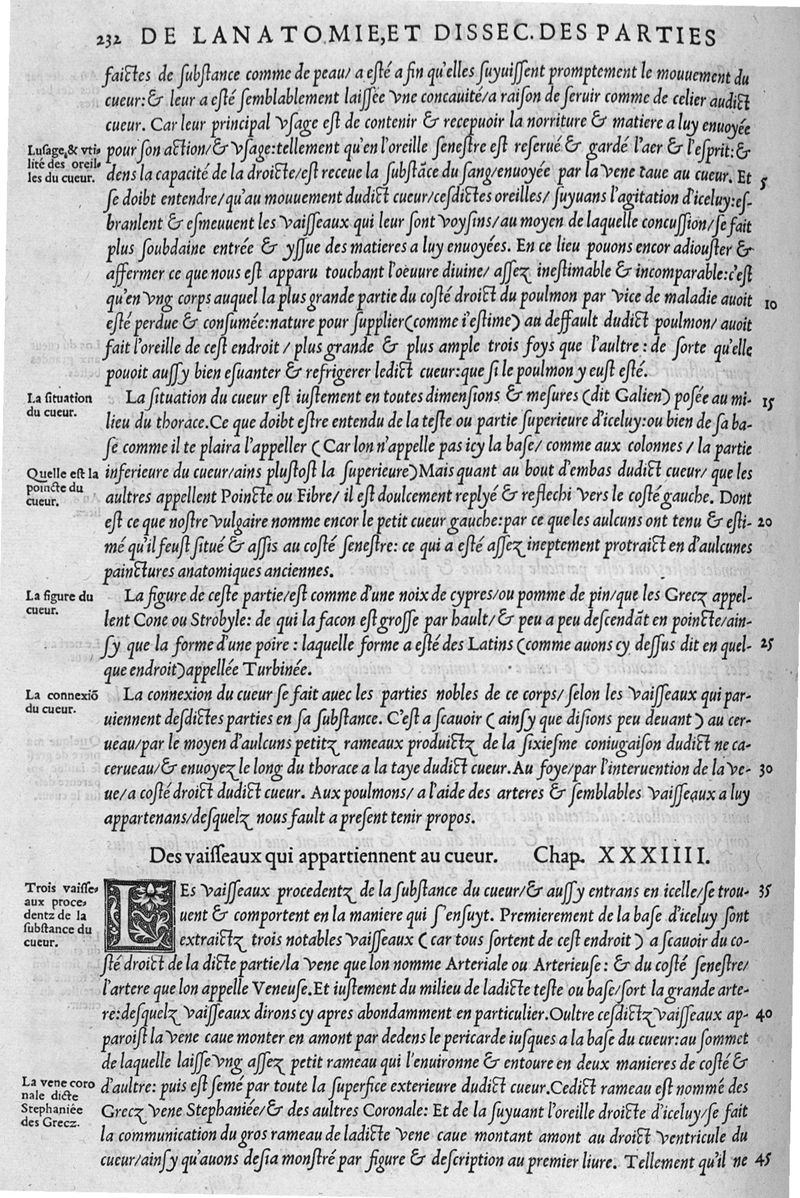 232 DE LANATOMIE, ET DISSEC. DES PARTIES
faictes de ſubſtance comme de peau/ a eſté a fin qu'elles ſuyuiſſent promptement le mouuement du
cueur:& leur a eſté ſemblablement laiſſée vne concauité/a raiſon de ſeruir comme de celier audict
cueur. Car leur principal vſage eſt de contenir & recepuoir la norriture & matiere a luy enuoyée
Luſage,& vti-
lité des oreil-
les du cueur.
pour ſon action/& vſage:tellement qu'en l'oreille ſeneſtre eſt reſerué & gardé l'aer & l'eſprit:&
dens la capacité de la droicte/eſt receue la ſubſtãce du ſang/enuoyée par la vene caue au cueur. Et 5
ſe doibt entendre/qu'au mouuement dudict cueur/ceſdictes oreilles/ ſuyuans l'agitation d'iceluy:eſ-
branlent & eſmeuuent les vaiſſeaux qui leur ſont voyſins/au moyen de laquelle concuſſion/ſe fait
plus ſoubdaine entrée & yſſue des matieres a luy enuoyées. En ce lieu pouons encor adiouſter &
affermer ce que nous eſt apparu touchant l'oeuure diuine/ aſſez ineſtimable & incomparable:c'eſt
qu'en vng corps auquel la plus grande partie du coſté droict du poulmon par vice de maladie auoit 10
eſté perdue & conſumée:nature pour ſupplier(comme i'eſtime) au deffault dudict poulmon/ auoit
fait l'oreille de ceſt endroit / plus grande & plus ample trois foys que l'aultre : de ſorte qu'elle
pouoit auſſy bien eſuanter & refrigerer ledict cueur:que ſi le poulmon y euſt eſté.
La ſituation
du cueur.
La ſituation du cueur eſt iuſtement en toutes dimenſions & meſures (dit Galien) poſée au mi- 15
lieu du thorace.Ce que doibt eſtre entendu de la teſte ou partie ſuperieure d'iceluy:ou bien de ſa ba-
ſe comme il te plaira l'appeller (Car lon n'appelle pas icy la baſe/ comme aux colonnes / la partie
Quelle eſt la
poincte du
cueur.
inferieure du cueur/ains pluſtoſt la ſuperieure)Mais quant au bout d'embas dudict cueur/ que les
aultres appellent Poincte ou Fibre/ il eſt doulcement replyé & reflechi vers le coſté gauche. Dont
eſt ce que noſtre vulgaire nomme encor le petit cueur gauche:par ce que les aulcuns ont tenu & eſti- 20
mé qu'il feuſt ſitué & aſſis au coſté ſeneſtre: ce qui a eſté aſſez ineptement protraict en d'aulcunes
painctures anatomiques anciennes.
La figure du
cueur.
La figure de ceſte partie/eſt comme d'une noix de cypres/ou pomme de pin/que les Grecz appel-
lent Cone ou Strobyle: de qui la facon eſt groſſe par hault/& peu a peu deſcendãt en poincte/ain-
ſy que la forme d'une poire : laquelle forme a eſté des Latins (comme auons cy deſſus dit en quel- 25
que endroit)appellée Turbinée.
La connexiõ
du cueur.
La connexion du cueur ſe fait auec les parties nobles de ce corps/ ſelon les vaiſſeaux qui par-
uiennent deſdictes parties en ſa ſubſtance. C'eſt a ſcauoir ( ainſy que diſions peu deuant ) au cer-
ueau/par le moyen d'aulcuns petitz rameaux produictz de la ſixieſme coniugaiſon dudict ne ca-
cerueau/& enuoyez le long du thorace a la taye dudict cueur. Au foye/par l'interuention de la ve- 30
ue/a coſté droict dudict cueur. Aux poulmons/ a l'aide des arteres & ſemblables vaiſſeaux a luy
appartenans/deſquelz nous fault a preſent tenir propos.
Des vaiſſeaux qui appartiennent au cueur. Chap. XXXIIII.
Trois vaiſſe-
aux proce-
dentz de la
ſubſtance du
cueur.
LEs vaiſſeaux procedentz de la ſubſtance du cueur/& auſſy entrans en icelle/ſe trou- 35
uent & comportent en la maniere qui s'enſuyt. Premierement de la baſe d'iceluy ſont
extraictz trois notables vaiſſeaux ( car tous ſortent de ceſt endroit ) a ſcauoir du co-
ſté droict de la dicte partie/la vene que lon nomme Arteriale ou Arterieuſe : & du coſté ſeneſtre/
l'artere que lon appelle Veneuſe.Et iuſtement du milieu de ladicte teſte ou baſe/ſort la grande arte-
re:deſquelz vaiſſeaux dirons cy apres abondamment en particulier.Oultre ceſdictz vaiſſeaux ap- 40
paroiſt la vene caue monter en amont par dedens le pericarde iuſques a la baſe du cueur:au ſommet
de laquelle laiſſe vng aſſez petit rameau qui l'enuironne & entoure en deux manieres de coſté &
La vene coro
nale dicte
Stephaniée
des Grecz.
d'aultre: puis eſt ſemé par toute la ſuperfice exterieure dudict cueur.Cedict rameau eſt nommé des
Grecz vene Stephaniée/& des aultres Coronale: Et de la ſuyuant l'oreille droicte d'iceluy/ſe fait
la communication du gros rameau de ladicte vene caue montant amont au droict ventricule du
cueur/ainſy qu'auons deſia monſtré par figure & deſcription au premier liure. Tellement qu'il ne 45